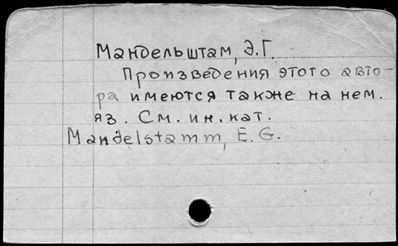 Мандельштам, Э.Г.
Произведения этого авто-
ра имеются также на нем.
яз. См. ин. кат.
Mandelstamm, E. G.